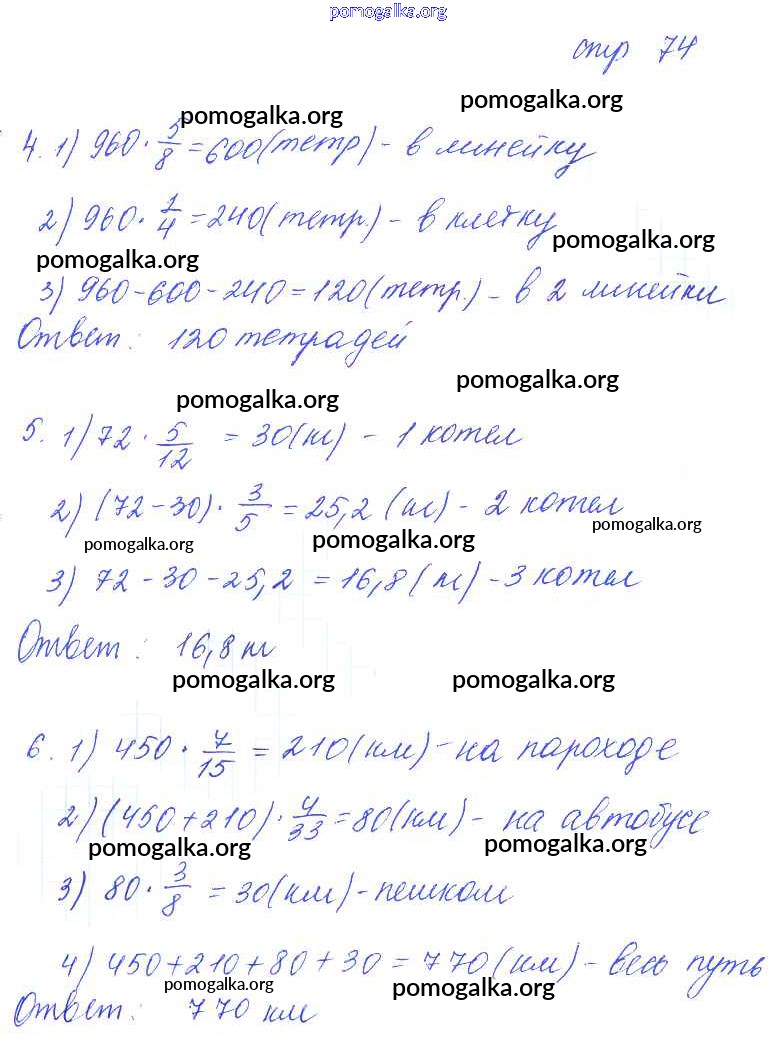 pomogalka.org
стр 74
pomogalka.org
pomogalka.org
4. 1) 960 · 5/8 = 600 (тетр) - в линейку
2) 960 · 1/4 = 240 (тетр.) - в клетку
pomogalka.org
pomogalka.org
3) 960 - 600 - 240 = 120 (тетр.) - в 2 линейки
Ответ: 120 тетрадей
pomogalka.org
pomogalka.org
5. 1) 72 · 5/12 = 30 (т) - 1 котел
2) (72 - 30) · 3/5 = 25,2 (т) - 2 котел
pomogalka.org
pomogalka.org
pomogalka.org
3) 72 - 30 - 25,2 = 16,8 (т) - 3 котел
Ответ: 16,8 т
pomogalka.org
pomogalka.org
6. 1) 450 · 7/15 = 210 (км) - на пароходе
2) (450 + 210) · 4/33 = 80 (км) - на автобусе
pomogalka.org
pomogalka.org
3) 80 · 3/8 = 30 (км) - пешком
4) 450 + 210 + 80 + 30 = 770 (км) - весь путь
pomogalka.org
pomogalka.org
Ответ: 770 км